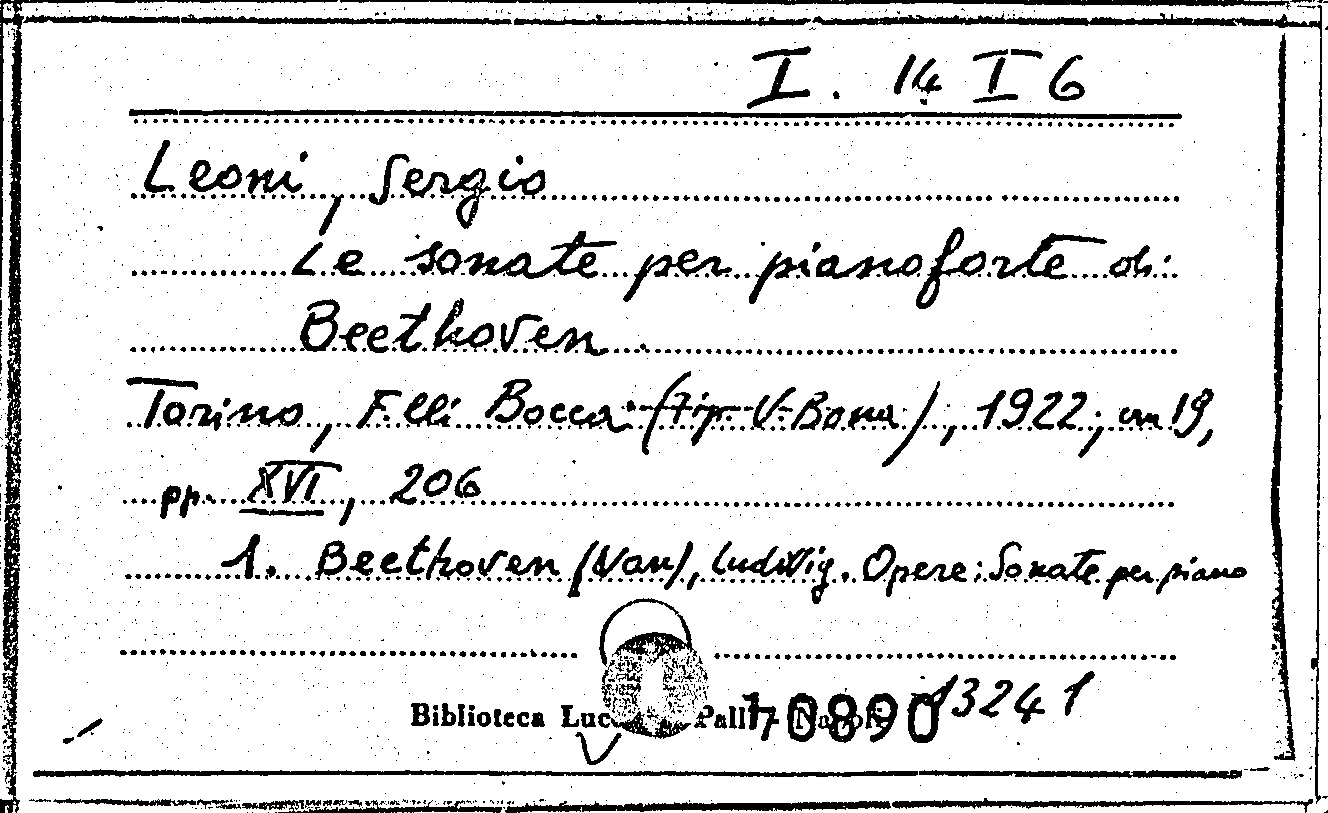 I. 14 I 6
Leoni, Sergio
Le sonate per pianoforte di
Beethoven.
Torino, F.lli Bocca (Tip. V. Bona), 1922; cm 19,
pp. XVI, 206
1. Beethoven (Van), Ludwig. Opere: Sonate per piano
13241
Biblioteca 70890